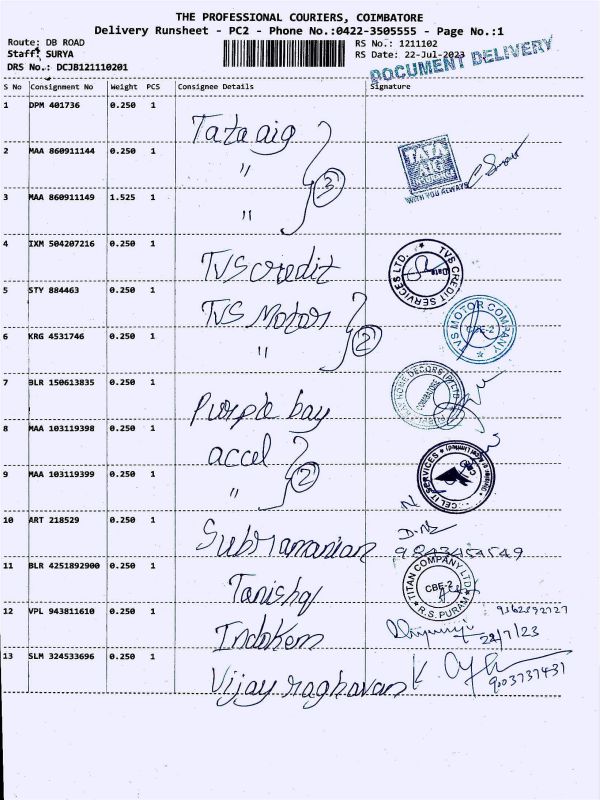 THE PROFESSIONAL COURIERS, COIMBATORE
Delivery Runsheet - PC2 - Phone No.:0422-3505555 - Page No.:1
Route: DB ROAD RS No.: 1211102
Staff: SURYA RS Date: 22-Jul-2023
DRS No.: DCJB121110201
DOCUMENT DELIVERY
S No Consignment No Weight PCS Consignee Details Signature
1 DPM 401736 0.250 1 Tata aig
2 MAA 860911144 0.250 1 "
TATA AIG
WITH YOU ALWAYS
3 MAA 860911149 1.525 1 "
3
4 IXM 504207216 0.250 1 TVS credit
TVS CREDIT SERVICES LTD.
Date
5 STY 884463 0.250 1 TVS Motor
TVS MOTOR COMPANY
CBE-2
6 KRG 4531746 0.250 1 "
2
7 BLR 150613835 0.250 1 Purple bay
HOME DECORS (P) LTD
COIMBATORE
8 MAA 103119398 0.250 1 accel
9 MAA 103119399 0.250 1 "
2
CEL IT SERVICES
10 ART 218529 0.250 1 Subramanian
11 BLR 4251892900 0.250 1 Tanishq
TITAN COMPANY LTD.
CBE-2
R.S. PURAM
12 VPL 943811610 0.250 1 Indokem
22/7/23
13 SLM 324533696 0.250 1 Vijay raghavan
9003737431